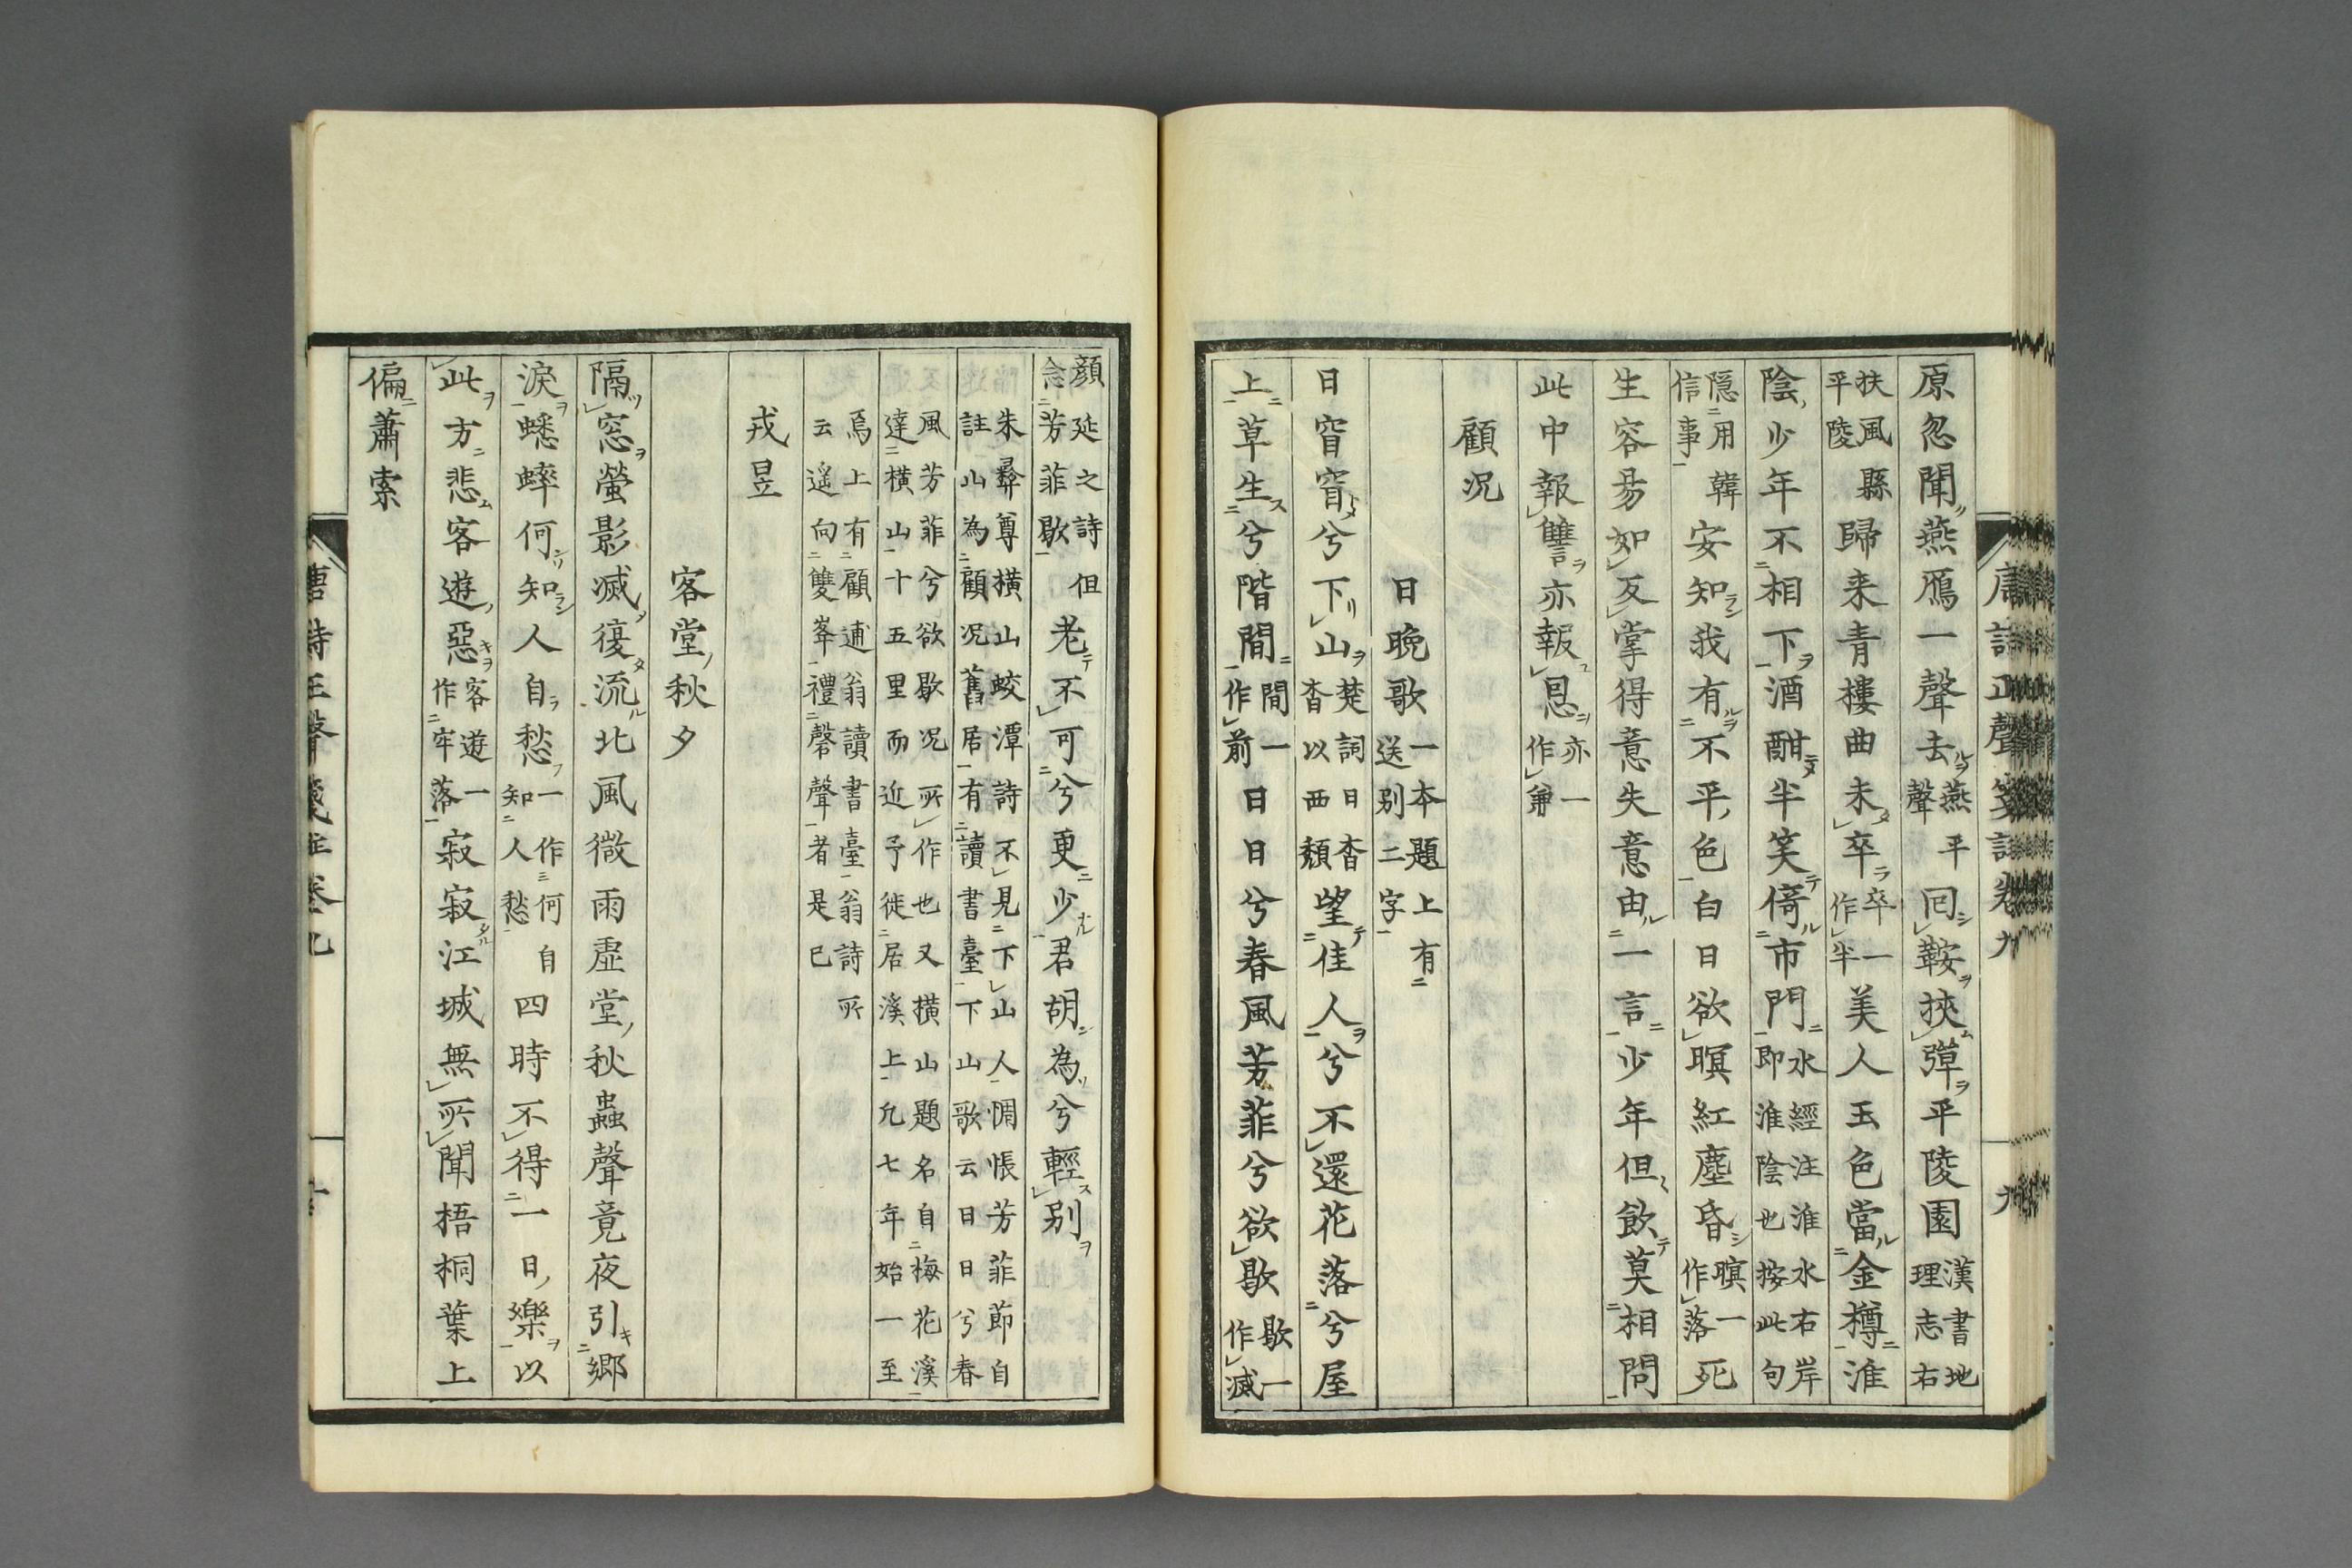 唐詩正聲箋註卷九　九
原忽聞燕鴈一聲去燕平聲回鞍挾彈平陵園漢書地理志右
扶風縣平陵歸来青樓曲未卒卒一作半美人玉色當金樽淮
陰少年不相下酒酣半笑倚市門水經注淮水右岸即淮陰也按此句
隱用韓信事安知我有不平色白日欲暝紅塵昏暝一作落死
生容易如反掌得意失意由一言少年但飲莫相問
此中報讐亦報恩亦一作兼
顧况
日晚歌一本題上有送别二字
日窅窅兮下山楚詞日杳杳以西頽望佳人兮不還花落兮屋
上草生兮階間間一作前日日兮春風芳菲兮欲歇歇一作滅
顔延之詩但念芳菲歇老不可兮更少君胡為兮輕别
朱彛尊横山蛟潭詩不見下山人惆悵芳菲節自註山為顧况舊居有讀書臺下山歌云日日兮春
風芳菲兮欲歇况所作也又横山題名自梅花溪達横山十五里而近予徙居溪上凡七年始一至
焉上有顧逋翁讀書臺翁詩所云遥向雙峯禮磬聲者是已
戎昱
客堂秋夕
隔窓螢影滅復流北風微雨虚堂秋蟲聲竟夜引鄉
淚蟋蟀何知人自愁一作何自知人愁四時不得一日樂以
此方悲客遊惡客遊一作牢落寂寂江城無所聞梧桐葉上
偏蕭索
唐詩正聲箋註卷九　十